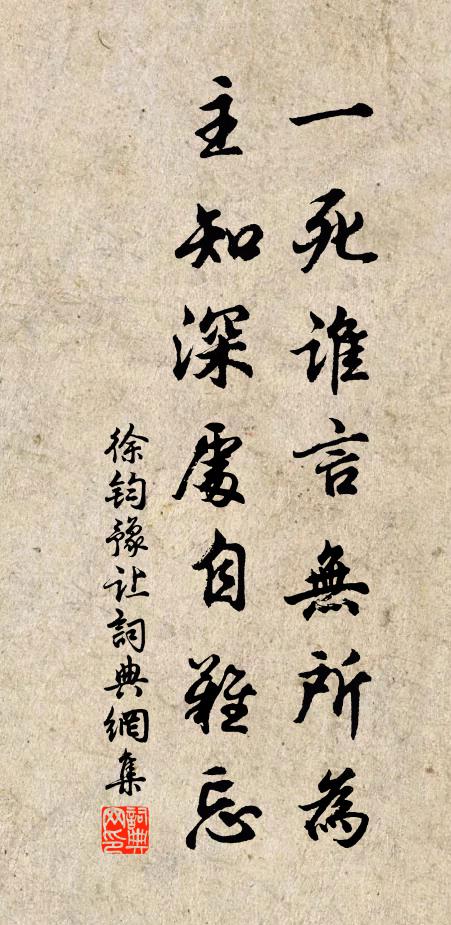 一死谁言無所為
主知深處自難忘
徐鈞豫让詞典網集
詞典网印